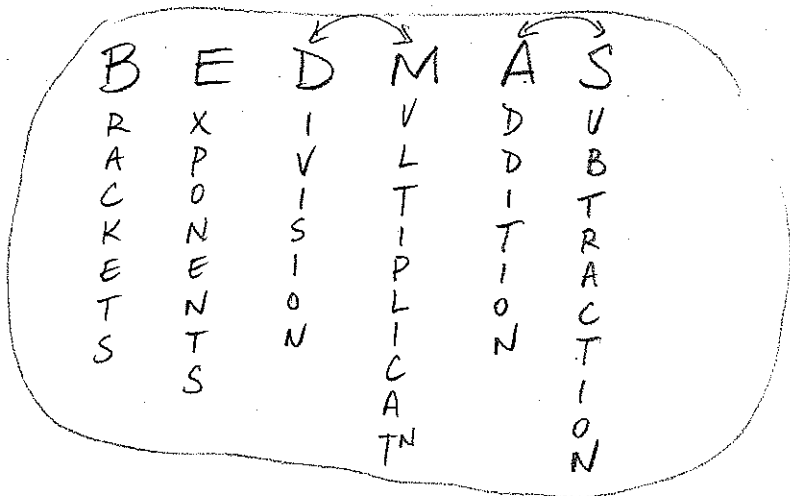 BRACKETS
EXPONENTS
DIVISION
MULTIPLICATN
ADDITION
SUBTRACTION